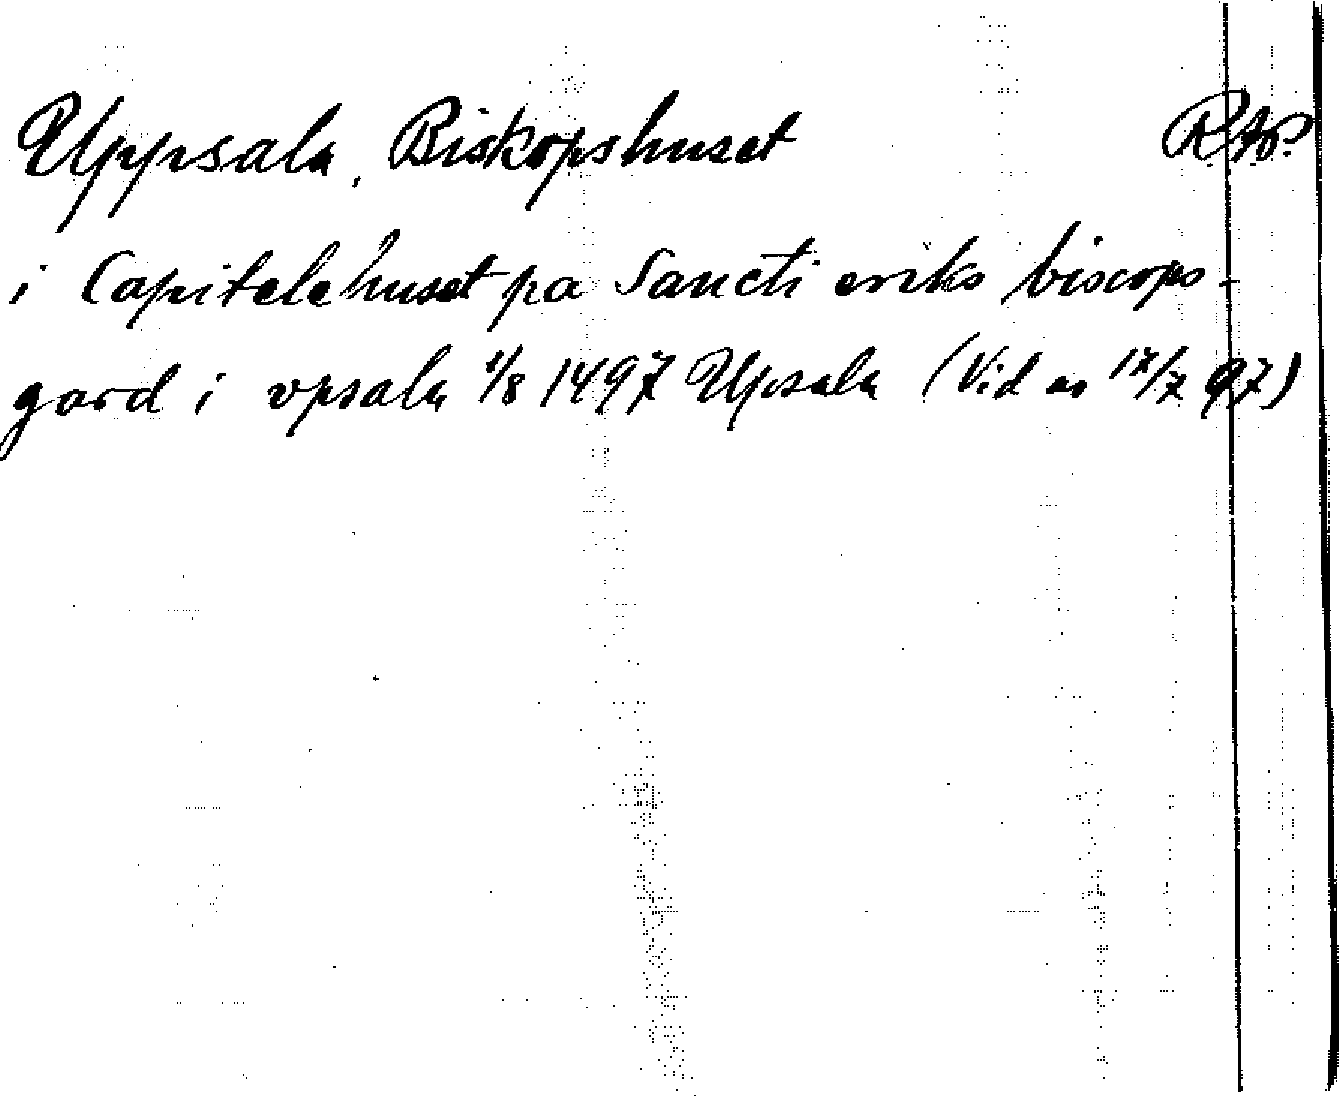 Uppsala, Biskopshuset RAP.
i Capitelehuset pa Sancti eriks biscops-
gard i vpsala 1/8 1497 Upsala (Vid av 17/7 97)